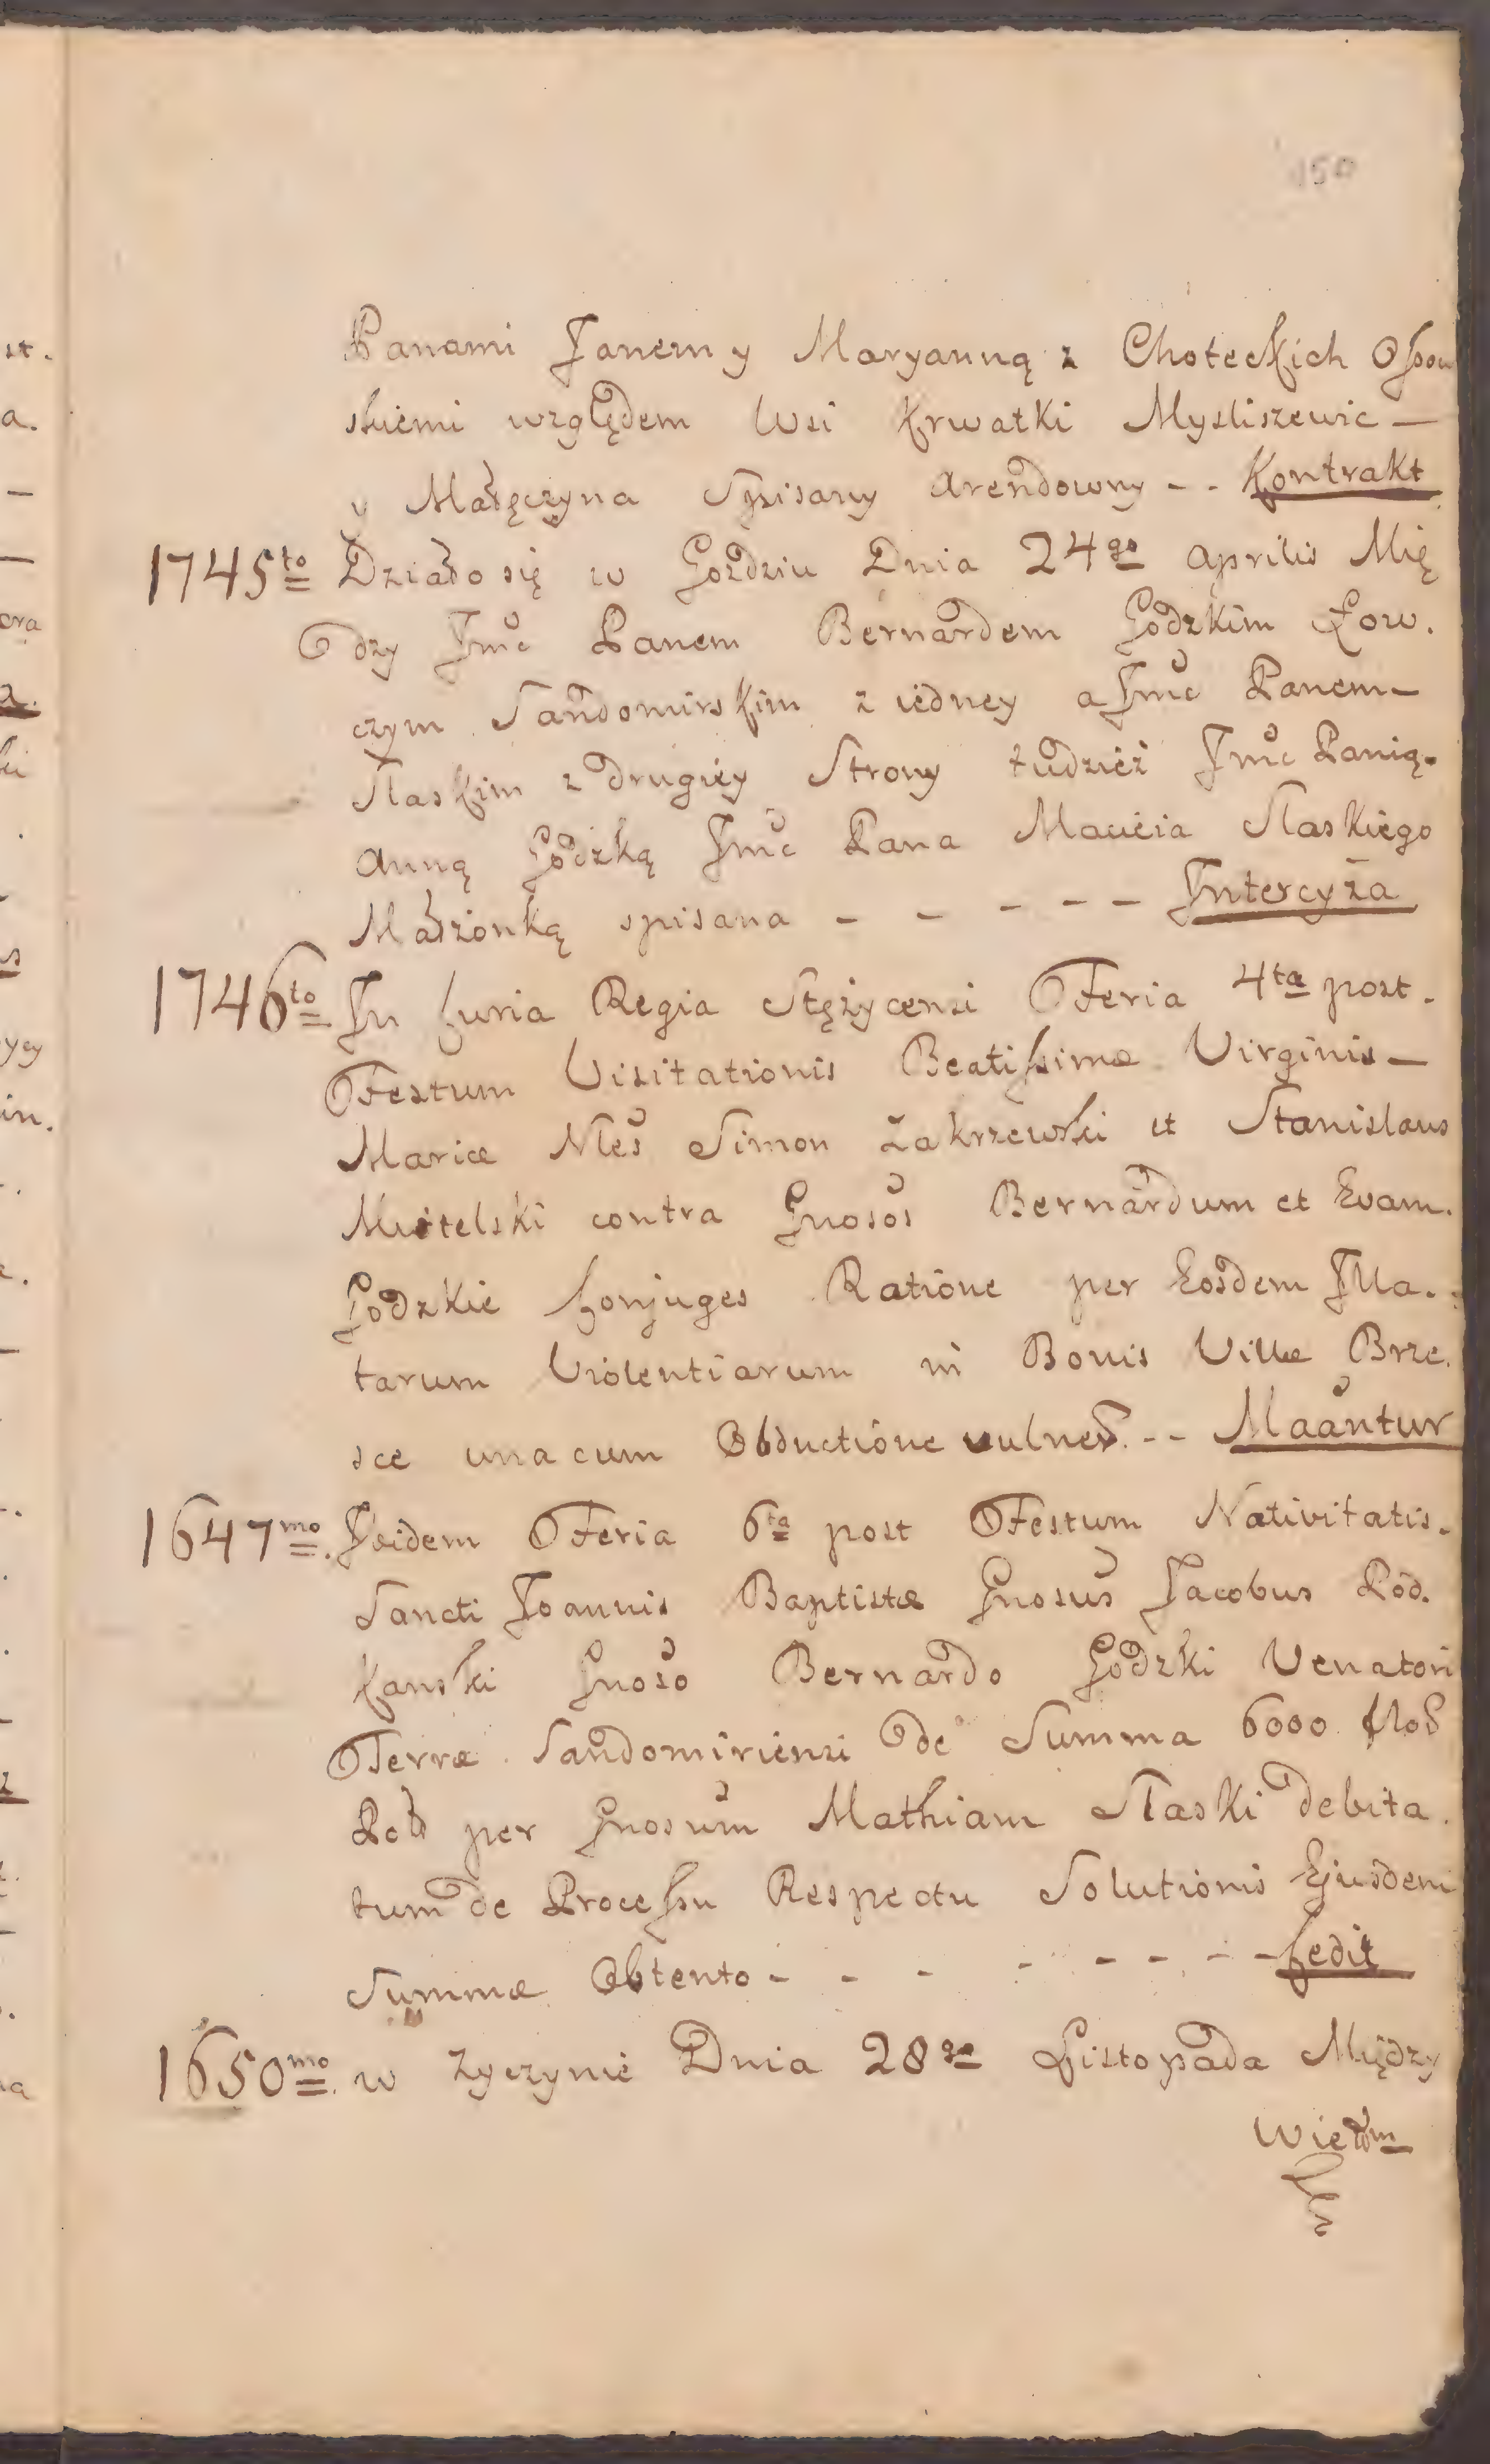 150
Panami Janem y Maryanną z Choteckich Ossow
skiemi względem Wsi Krwatki Mysliszewic —
y Małęczyna Spisany Arendowny - - Kontrakt
1745to Działo się w Gozdziu Dnia 24go Aprilis Mię
dzy Jmć Panem Bernardem Godzkim Łow.
czym Sandomirskim z iedney a Jmć Panem —
Slaskim z drugiey Strony tudzież Jmć Panią.
Anną Godzką Jmć Pana Macieia Slaskiego
Małżonką spisana - - - - - Intercyza
1746to In Curia Regia Stężycensi Feria 4ta post.
Festum Visitationis Beatissimæ Virginis —
Mariæ Nles Simon Zakrzewski et Stanislaus
Musitelski contra Gnosos Bernardum et Evam.
Godzkie Conjuges Ratione per Eosdem Illa.
tarum Violentiarum in Bonis Villæ Brze.
sce una cum Obductione vulner. - - Maantur
1647mo. Ibidem Feria 6ta post Festum Nativitatis.
Sancti Joannis Baptistæ Gnosus Jacobus Pod.
kanski Gnoso Bernardo Godzki Venatori
Terræ Sandomiriensi de Summa 6000 flor
Pol per Gnosum Mathiam Slaski debita.
tum de Processu Respectu Solutionis Ejusdem
Summæ Obtento - - - - - - - Cedit
1650mo. w Zyczynie Dnia 28go Listopada Między
Wielm